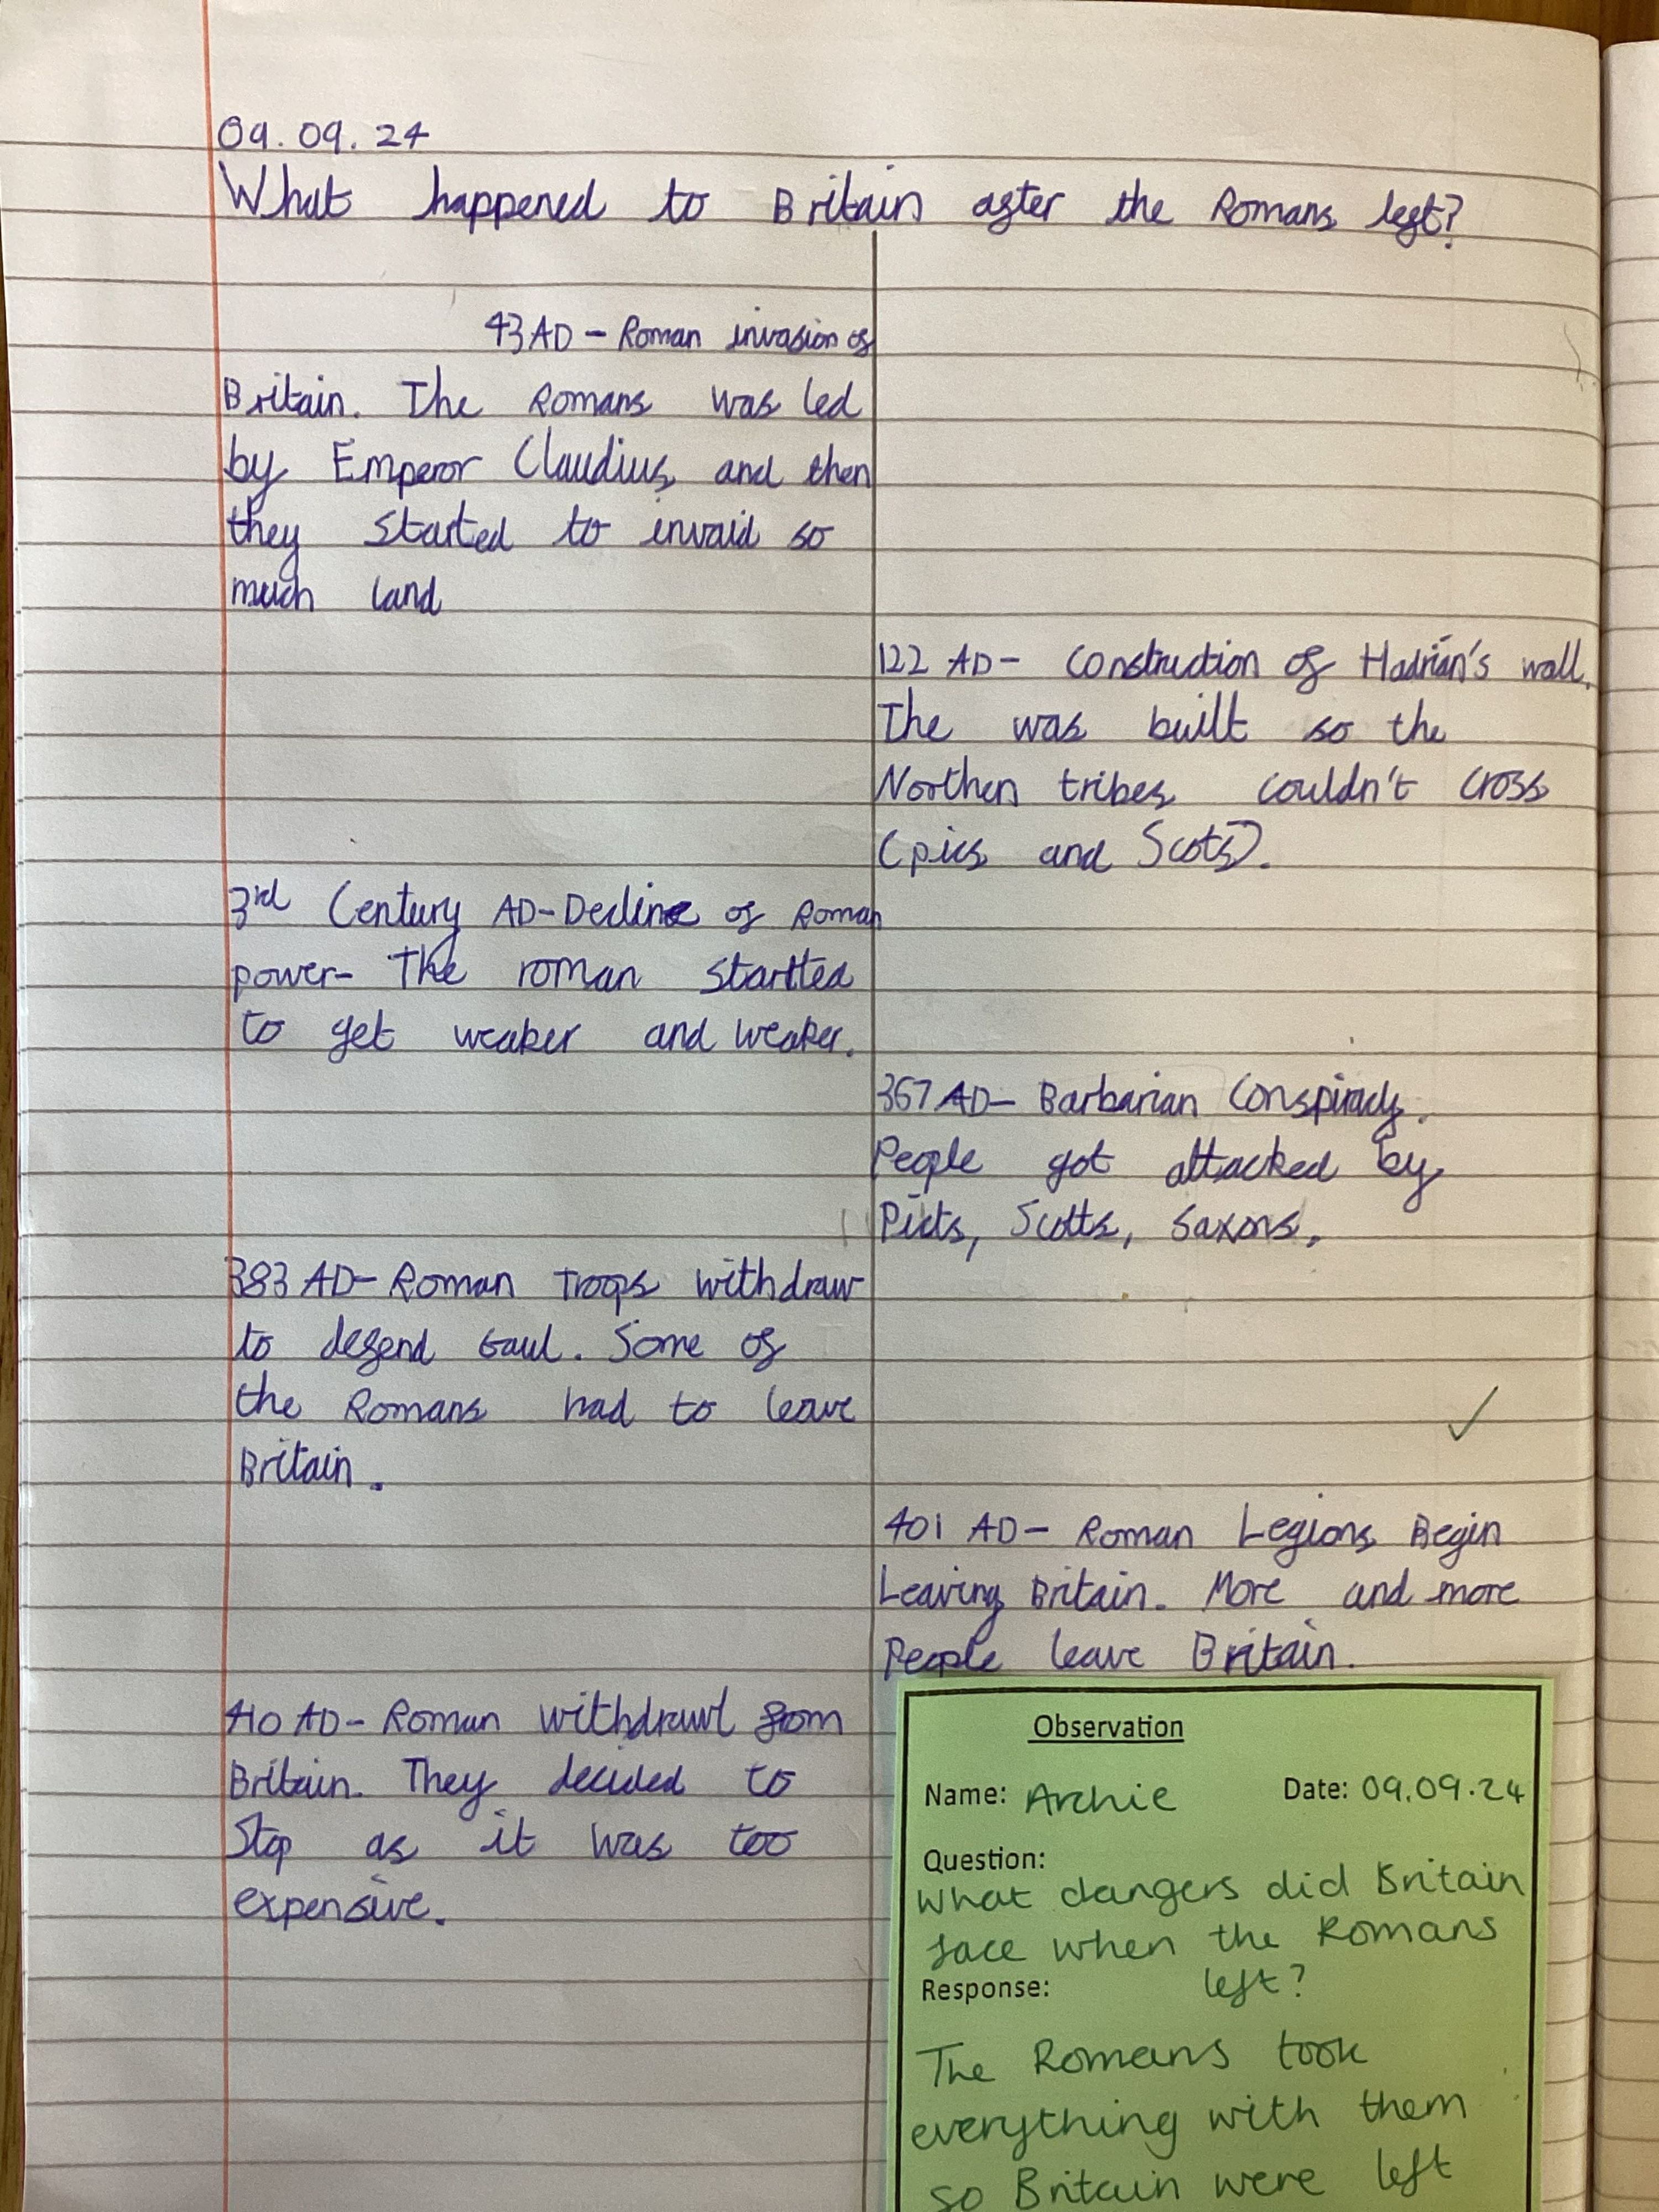 09.09.24
What happened to Britain after the Romans left?
43AD - Roman invasion of
Britain. The Romans was led
by Emperor Claudius and then
they started to invaid so
much land
122 AD - Construction of Hadrian's wall.
The was built so the
Northen tribes couldn't cross
(pics and Scots).
3rd Century AD - Decline of Roman
power - The roman startted
to get weaker and weaker.
367 AD - Barbarian Conspiracy.
People got attacked by
Picts, Scotts, Saxons.
383 AD - Roman Troops withdraw
to defend Gaul. Some of
the Romans had to leave
Britain.
401 AD - Roman Legions Begin
Leaving Britain. More and more
People leave Britain.
410 AD - Roman withdrawl from
Britain. They decided to
stop as it was too
expensive.
Observation
Name: Archie Date: 09.09.24
Question:
What dangers did Britain
face when the Romans
left?
Response:
The Romans took
everything with them
so Britain were left